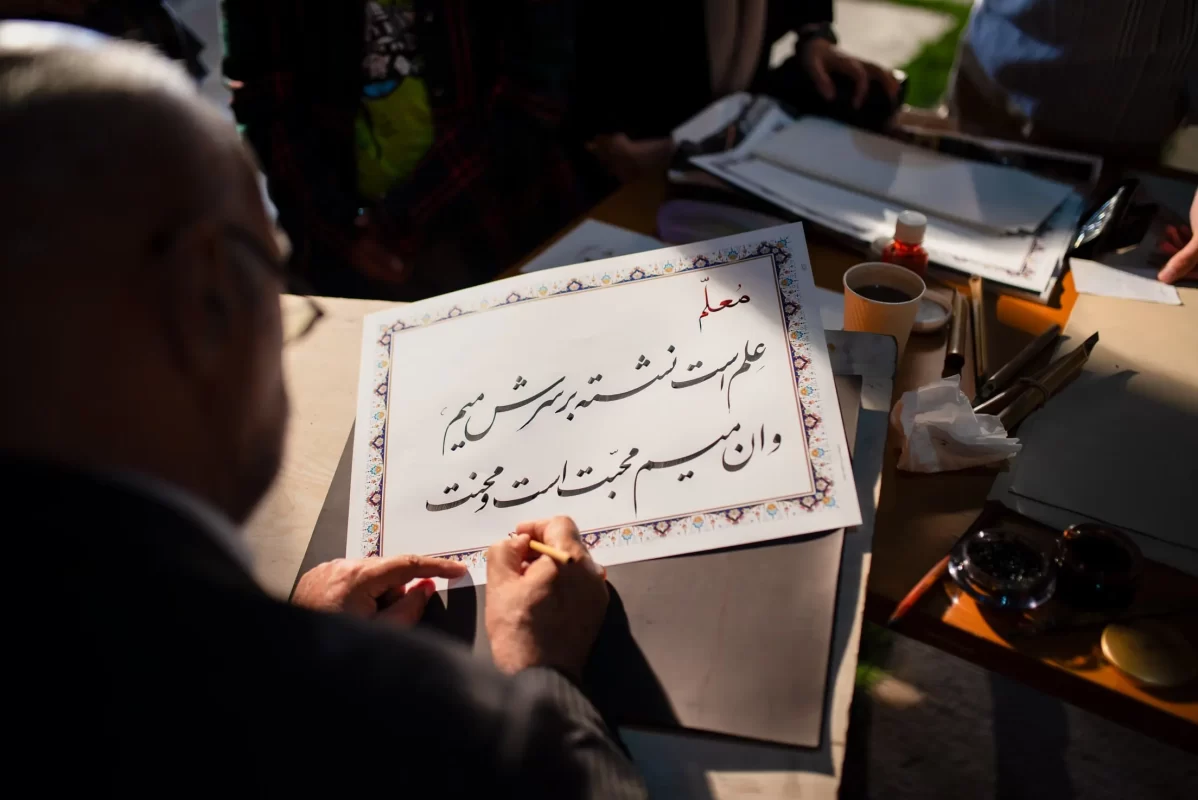 مُعلّم
عِلم است نشسته بر سرش میم
وان میم محبّت است و محنت